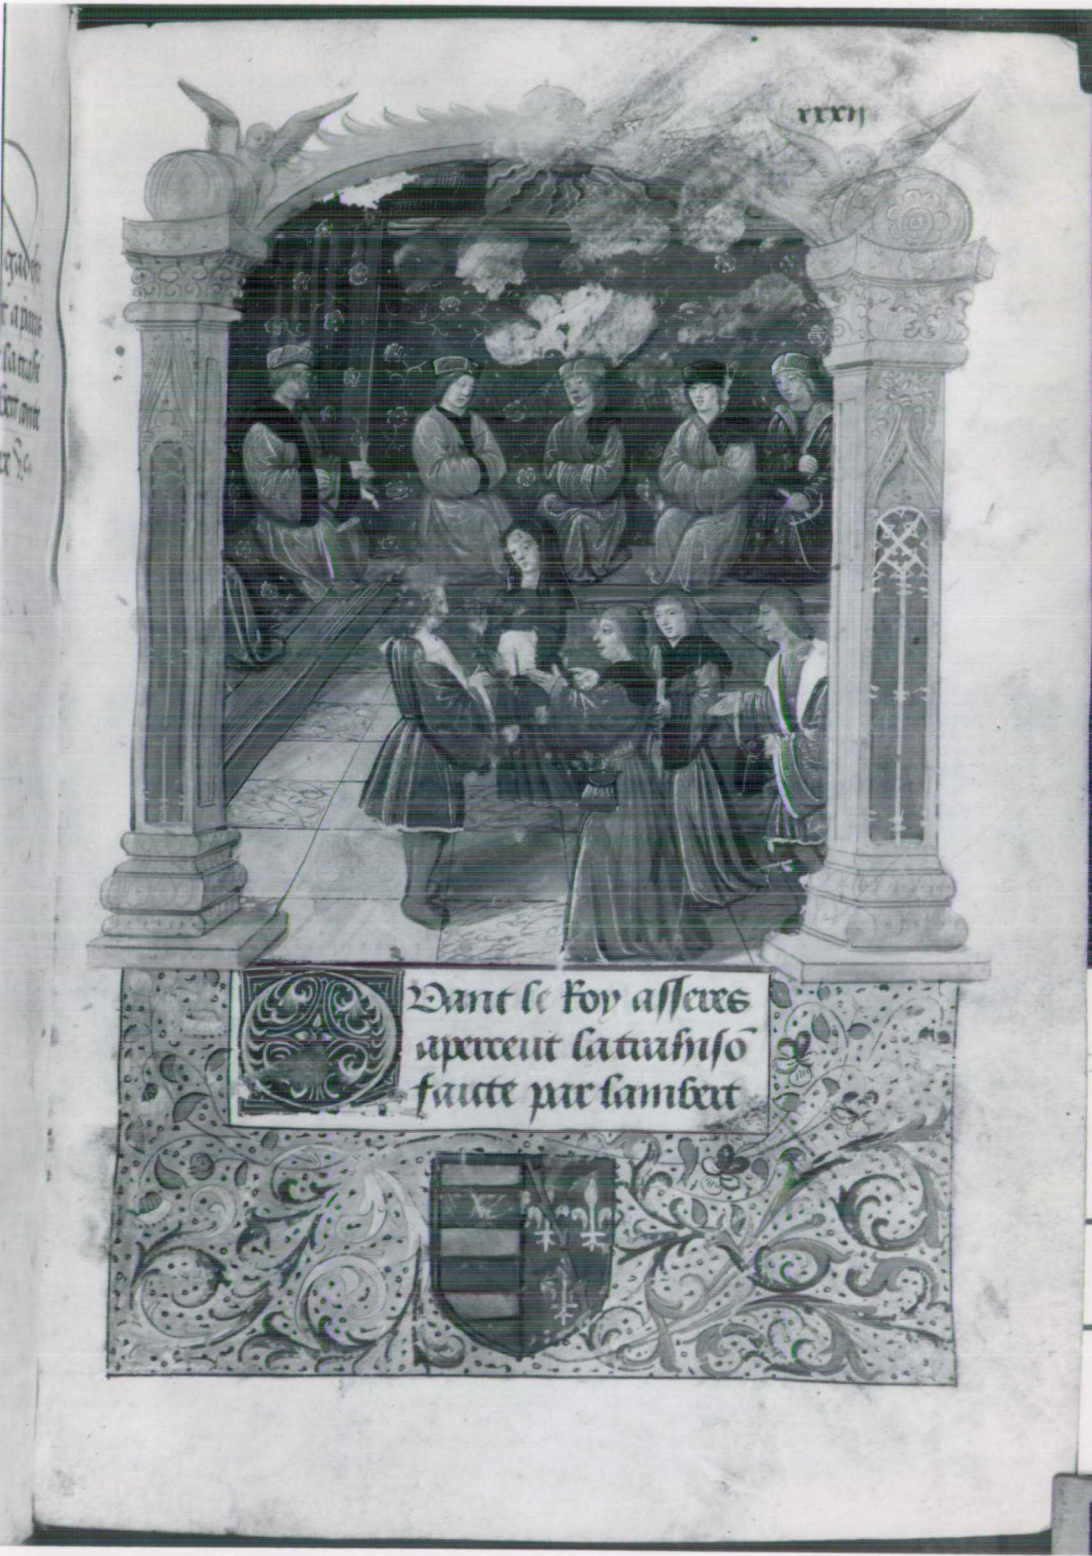 xxxij
Quant le Roy asseres
aperceut la trahisō
faicte par lambert